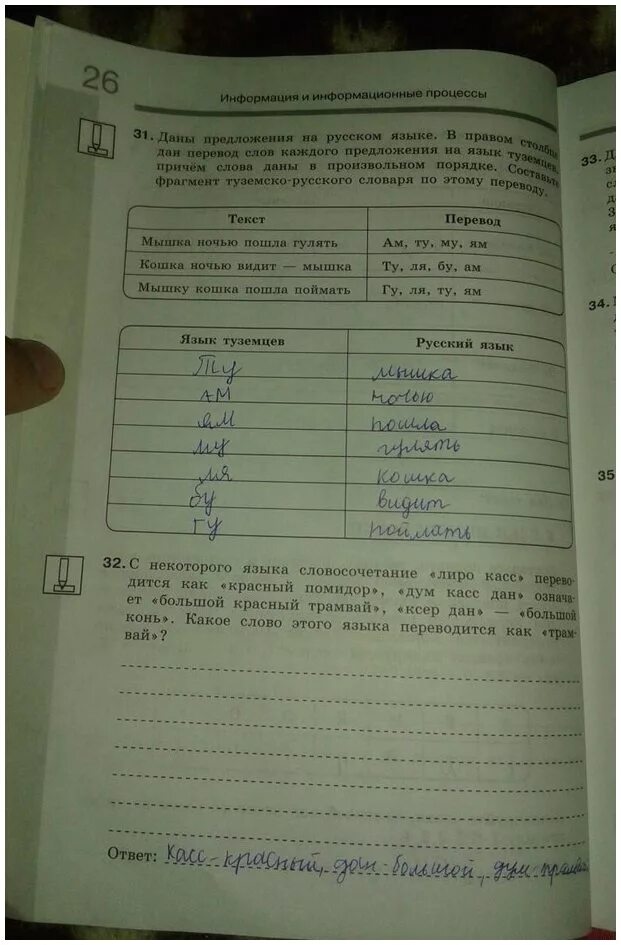 26
Информация и информационные процессы
31. Даны предложения на русском языке. В правом столбце
дан перевод слов каждого предложения на язык туземцев,
причём слова даны в произвольном порядке. Составьте
фрагмент туземско-русского словаря по этому переводу.
Текст Перевод
Мышка ночью пошла гулять Ам, ту, му, ям
Кошка ночью видит — мышка Ту, ля, бу, ам
Мышку кошка пошла поймать Гу, ля, ту, ям
Язык туземцев Русский язык
Ту мышка
ам ночью
ям пошла
му гулять
ля кошка
бу видит
гу поймать
32. С некоторого языка словосочетание «лиро касс» перево-
дится как «красный помидор», «дум касс дан» означа-
ет «большой красный трамвай», «ксер дан» — «большой
конь». Какое слово этого языка переводится как «трам-
вай»?
Ответ: Касс-красный, дан-большой, дум трамвай
33. Д
34.
35